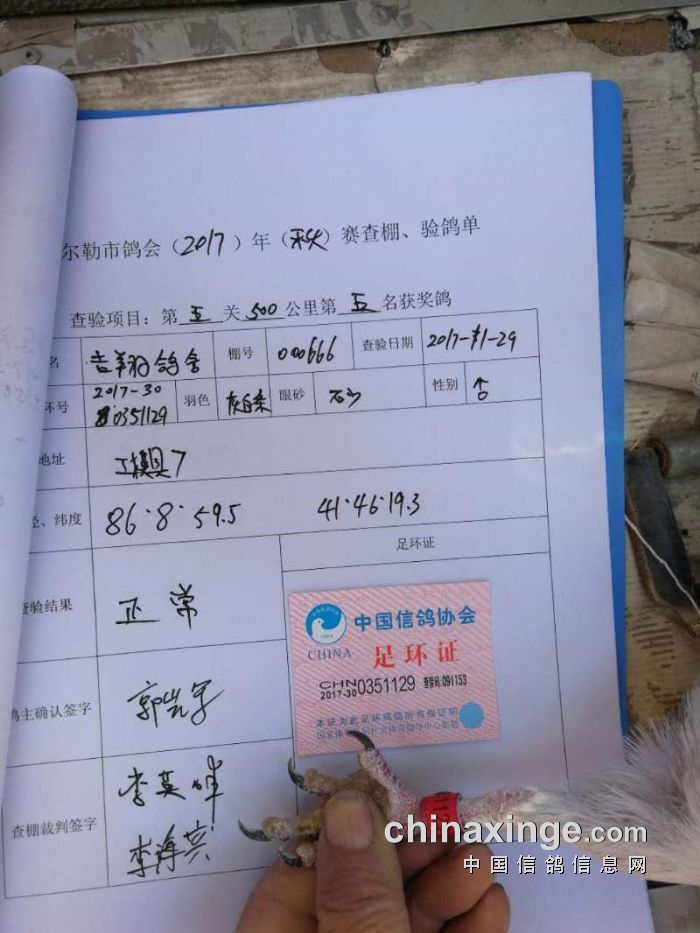 尔勒市鸽会（2017）年（秋）赛查棚、验鸽单
查验项目：第 五 关 500 公里第 五 名获奖鸽
名 吉翔鸽舍 棚号 000666 查验日期 2017-11-29
环号 2017-30 0351129 羽色 灰白条 眼砂 石少 性别
地址 工模具厂
经、纬度 86·8·59.5 41·46·19.3
查验结果 正常 足环证
中国信鸽协会
CHINA 足环证
CHN 2017-30 0351129 查验码:091153
本证为此足环信鸽所有权证明
鸽主确认签字
查棚裁判签字 李英
李海
chinaxinge.com
中国信鸽信息网